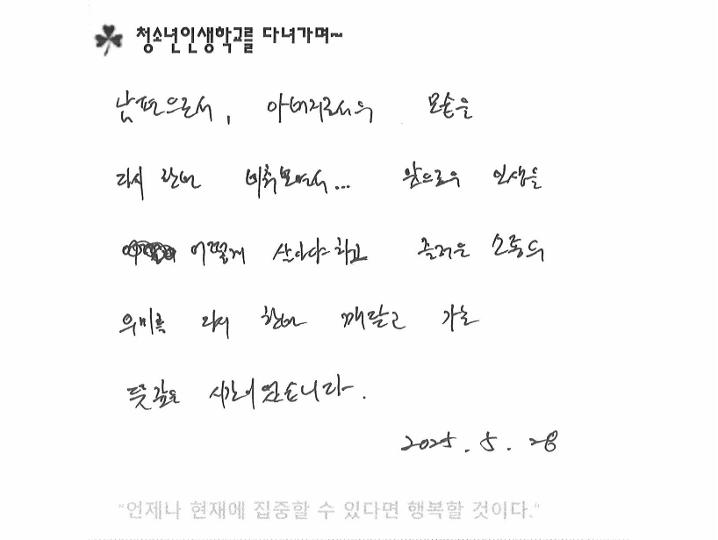 청소년인생학교를 다녀가며~
남편으로서, 아버지로서의 모습을
다시 한번 비춰보면서... 앞으로의 인생을
어떻게 살아야하고 즐거운 소통의
의미를 다시 한번 깨닫고 가는
뜻깊은 시간이었습니다.
2025. 5. 28
"언제나 현재에 집중할 수 있다면 행복할 것이다."